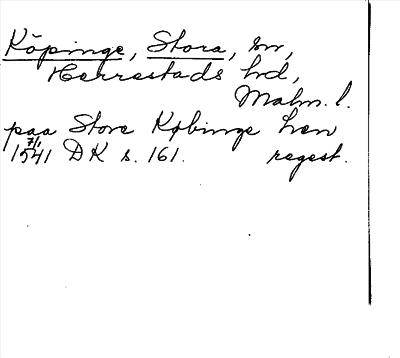 Köpinge, Stora, sn,
Herrestads hrd,
Malm. l.
paa Store Købinge hen
7/1
1541 DK s. 161. regest.